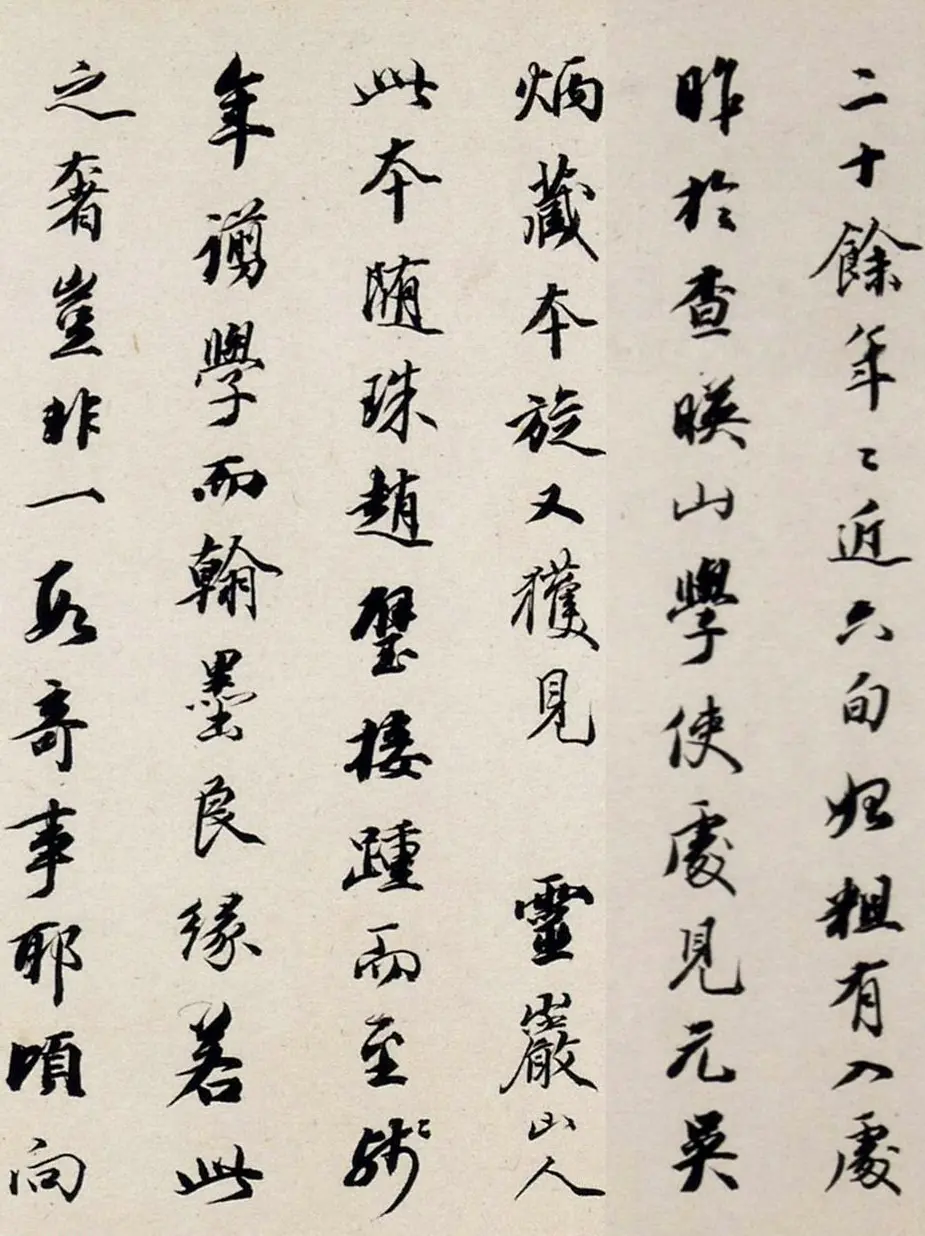 二十餘年〻近六旬始粗有入處
昨於查暎山學使處見元吳
炳藏本旋又獲見 靈巖山人
此本随珠趙璧接踵而至殘
年謭學而翰墨良緣若此
之奢豈非一段奇事耶頃向